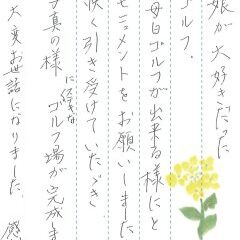 娘が大好きだった
ゴルフ.
毎日ゴルフが出来る様にと
モニュメントをお願いしました
快く引き受けていただき
写真の様に綺麗なゴルフ場が完成ま
大変お世話になりました.感